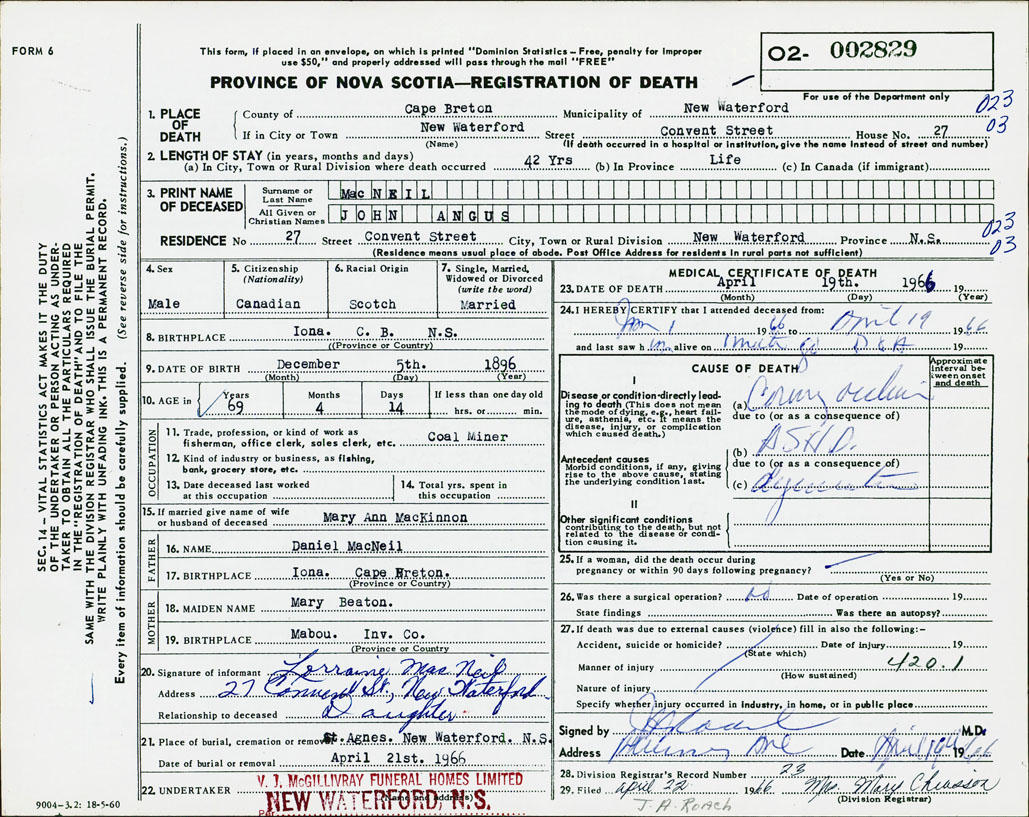 FORM 6
This form, if placed in an envelope, on which is printed "Dominion Statistics – Free, penalty for improper
use $50," and properly addressed will pass through the mail "FREE"
PROVINCE OF NOVA SCOTIA—REGISTRATION OF DEATH
02- 002829
For use of the Department only
023
03
1. PLACE OF DEATH
County of Cape Breton Municipality of New Waterford
If in City or Town New Waterford Street Convent Street House No. 27
(Name) (If death occurred in a hospital or institution, give the name instead of street and number)
2. LENGTH OF STAY (in years, months and days)
(a) In City, Town or Rural Division where death occurred 42 Yrs (b) In Province Life (c) In Canada (if immigrant)
3. PRINT NAME OF DECEASED
Surname or Last Name MacNEIL
All Given or Christian Names JOHN ANGUS
023
03
RESIDENCE No 27 Street Convent Street City, Town or Rural Division New Waterford Province N.S.
(Residence means usual place of abode. Post Office Address for residents in rural parts not sufficient)
4. Sex
Male
5. Citizenship
(Nationality)
Canadian
6. Racial Origin
Scotch
7. Single, Married,
Widowed or Divorced
(write the word)
Married
8. BIRTHPLACE Iona. C. B. N.S.
((Province or Country)
9. DATE OF BIRTH December 5th. 1896
(Month) (Day) (Year)
10. AGE in Years Months Days If less than one day old
69 4 14 hrs. or min.
OCCUPATION
11. Trade, profession, or kind of work as
fisherman, office clerk, sales clerk, etc. Coal Miner
12. Kind of industry or business, as fishing,
bank, grocery store, etc.
13. Date deceased last worked
at this occupation
14. Total yrs. spent in
this occupation
15. If married give name of wife
or husband of deceased Mary Ann MacKinnon
FATHER
16. NAME Daniel MacNeil
17. BIRTHPLACE Iona. Cape Breton.
(Province or Country)
MOTHER
18. MAIDEN NAME Mary Beaton.
19. BIRTHPLACE Mabou. Inv. Co.
(Province or Country
20. Signature of informant Lorraine MacNeil
Address 27 Convent St., New Waterford
Relationship to deceased Daughter
21. Place of burial, cremation or removal St. Agnes. New Waterford. N.S.
Date of burial or removal April 21st. 1966
22. UNDERTAKER V. J. McGILLIVRAY FUNERAL HOMES LIMITED
NEW WATERFORD, N.S.
(Name and address)
Per
MEDICAL CERTIFICATE OF DEATH
23. DATE OF DEATH April 19th. 1966 19
(Month) (Day) (Year)
24. I HEREBY CERTIFY that I attended deceased from:
Jan 1 1966 to April 19 1966
and last saw h im alive on 19
CAUSE OF DEATH
Approximate
interval be-
tween onset
and death
I
Disease or condition directly lead-
ing to death (This does not mean
the mode of dying, e.g., heart fail-
ure, asthenia, etc. It means the
disease, injury, or complication
which caused death.)
(a)
due to (or as a consequence of)
(b) ASHD.
due to (or as a consequence of)
(c)
Antecedent causes
Morbid conditions, if any, giving
rise to the above cause, stating
the underlying condition last.
II
Other significant conditions
contributing to the death, but not
related to the disease or condi-
tion causing it.
25. If a woman, did the death occur during
pregnancy or within 90 days following pregnancy?
(Yes or No)
26. Was there a surgical operation? no Date of operation 19
State findings Was there an autopsy?
27. If death was due to external causes (violence) fill in also the following:–
Accident, suicide or homicide? Date of injury 19
(State which)
Manner of injury 420.1
(How sustained)
Nature of injury
Specify whether injury occurred in industry, in home, or in public place
Signed by M.D.
Address Date April 19 1966
28. Division Registrar's Record Number 23
29. Filed April 22 1966 Mrs. Mary Chiasson
(Division Registrar)
J. A. Roach
SEC. 14 – VITAL STATISTICS ACT MAKES IT THE DUTY
OF THE UNDERTAKER OR PERSON ACTING AS UNDER-
TAKER TO OBTAIN ALL THE PARTICULARS REQUIRED
IN THE "REGISTRATION OF DEATH" AND TO FILE THE
SAME WITH THE DIVISION REGISTRAR WHO SHALL ISSUE THE BURIAL PERMIT.
WRITE PLAINLY WITH UNFADING INK. THIS IS A PERMANENT RECORD.
Every item of information should be carefully supplied. (See reverse side for instructions.)
9004-3.2: 18-5-60